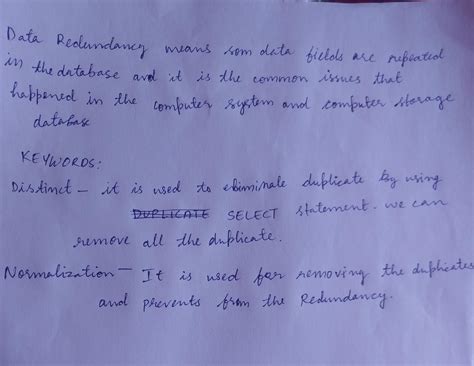 Data Redundancy means som data fields are repeated
in the database and it is the common issues that
happened in the computer system and computer storage
database
KEYWORDS:
Distinct – it is used to eliminate duplicate by using
DUPLICATE SELECT statement. we can
remove all the duplicate.
Normalization – It is used for removing the duplicates
and prevents from the Redundancy.